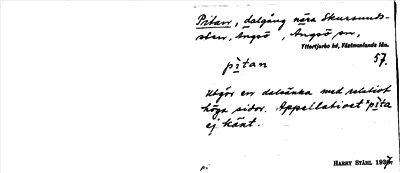 Pitan, dalgång nära Skursunds-
sten, Ängsö, Ängsö sn,
Yttertjurbo hd, Västmanlands län.
pìtan 57.
Utgör en dalsänka med relativt
höga sidor. Appellativet *pìta
ej känt.
pi HARRY STÅHL 1937.